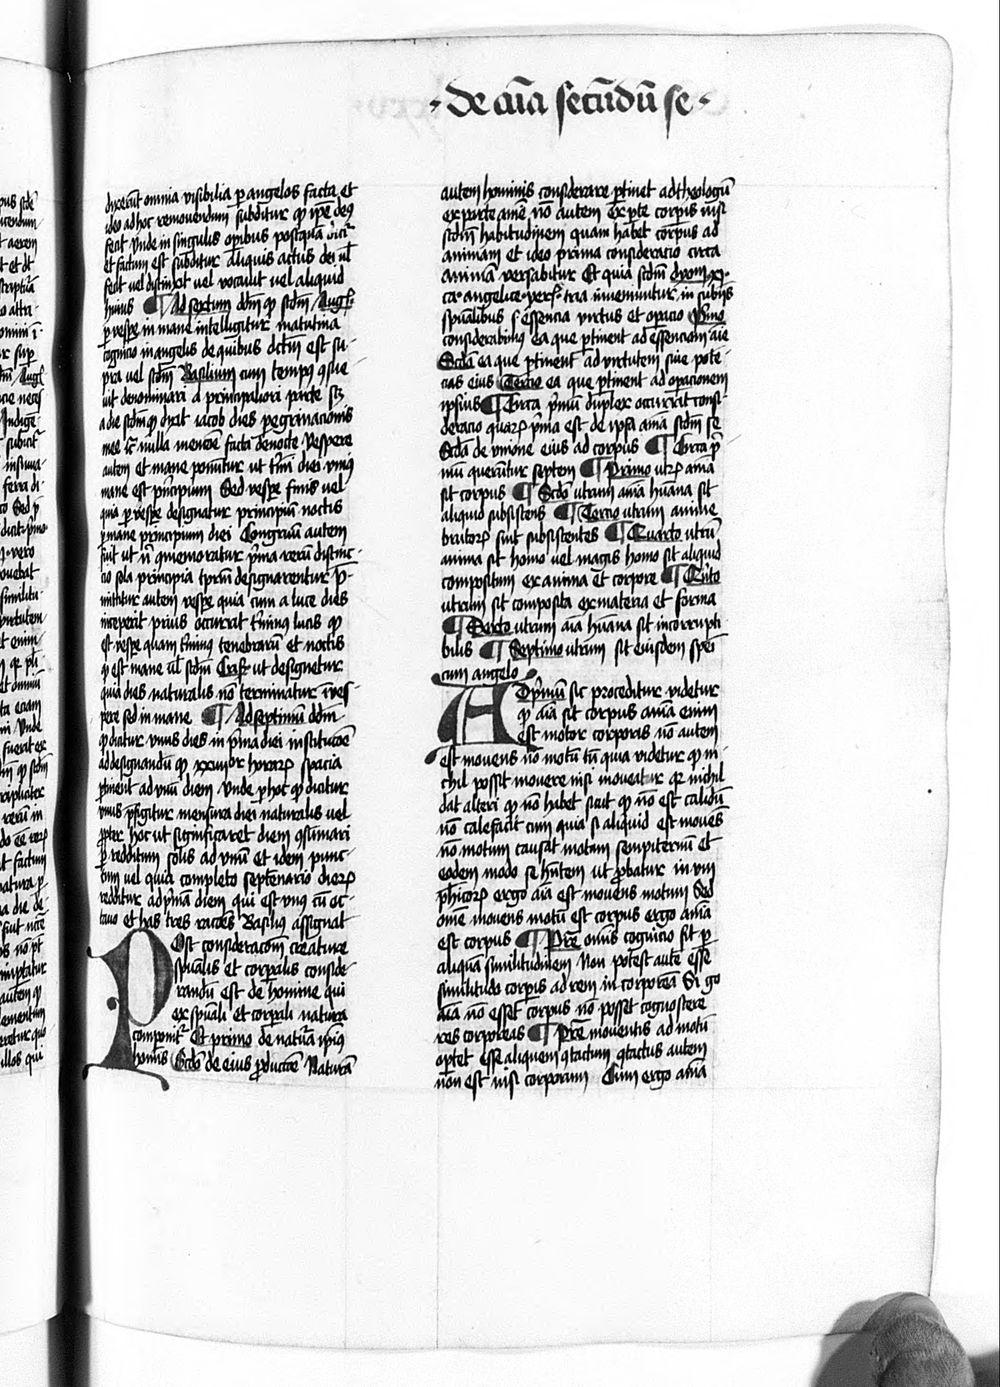 de aīa secūdū se
dixerūt omnia visibilia p angelos facta et
ideo ad hoc removendum subditur qͦ ipē deꝰ
fecit Unde in singulis opibus postquā dicit
et factum est subditur aliquis actus dei ul̄
fecit vel distinxit vel vocavit vel aliquid
huius ¶ Ad sextum dd̄m qͦ scdm̄ Augꝰ
p vespe in mane intelligitur matutina
cognicio in angelis de quibus dctm̄ est su-
pra vel scdm̄ Basilium cum tempꝰ ꝯsue
vit denominari a principaliori parte scz
a die scdm̄ qͦ dixit iacob dies pegrinacionis
mee īt nulla mencōe facta de nocte Vespere
autem et mane ponūtur ut tīmi diei cuiꝰ
mane est pncipium Sed vespe finis vel
quia p vespe designatur principium noctis
p mane principium diei Congruū autem
fuit ut ū gmemoratur pma rerū distinc-
cio sola principia tprum designarentur P̄-
mittitur autem vespe quia cum a luce dies
inceperit prius occurrit tīminꝰ lucis qͦ
est vespe quam tīminꝰ tenebrarū et noctis
qͦ est mane ul̄ scdm̄ Crisꝰ ut designetur
quia dies naturalis nō terminatur ī ves-
pere sed in mane ¶ Ad septimū dd̄m
qͦ dicitur vnus dies in pma diei institucōe
ad designandū qͦ xxiiijor horarꝫ spacia
ptinent ad vnū diem Unde p hoc qͦ dicitur
vnus pfigitur mensura diei naturalis vel
ppter hoc ut significaret diem ꝯsumari
p redditum solis ad vnū et idem punc-
tum vel quia completo septenario dierꝫ
redditur ad pmā diem qui est vnꝰ cū oc-
tavo et has tres racōes Basilius assignat
Post consideracōm creature
spūalis et corpalis conside-
randū est de homine qui
ex spūali et corpali natura
componitʳ Et primo de natura ipsiꝰ
homīs Scdō de eius pductōe Naturā
autem hominis considerare ptinet ad theologū
ex parte anīe nō autem ex pte corpis nisi
scdm̄ habitudinem quam habet corpus ad
animam et ideo prima consideracio circa
animā versabitur Et quia scdm̄ dyoni. xj.
ca. angelice yerꝰ. tria inveniuntur in subijs
spūalibus s. essencia virtus et opacio Primo
considerabimꝰ ea que ptinent ad essenciam aīe
Scdō ea que ptinent ad virtutem sive pote-
cias eius Tercio ea que ptinent ad opacionem
ipsius ¶ Circa pmū duplex occurrit consi-
deracio quarꝫ pma est de ipsa aīma scdm̄ se
Scda de vnione eius ad corpus ¶ Circa p
mū querūtur septem ¶ Primo utꝫ anīa
sit corpus ¶ Scdō utrum aīma hūana sit
aliquid subsistens ¶ Tercio utrum animie
brutorꝫ sint subsistentes ¶ Quarto utrū
anima sit homo vel magis homo sit aliquid
compositum ex anima et corpore ¶ Qūto
utrum sit composita ex materia et forma
¶ Sexto utrum aīa hūana sit incorrupti
bilis ¶ Septimo utrum sit eiusdem spēi
cum angelo
Ad pmū sic proceditur videtur
qͦ aīa sit corpus aīma enim
est motor corporis nō autem
est movens nō motū tū quia videtur qͦ ni-
chil possit movere nisi moveatur qꝫ nichil
dat alteri qͦ nō habet sicut qͦ nō est calidū
nō calefacit tum quia si aliquid est movēs
nō motum causat motum sempiternū et
eodem modo se hn̄tem ut pbatur in viij
phicorꝫ ergo aīa est movens motum Sed
omē movens motū est corpus ergo anīa
est corpus ¶ Pre omīs cognicio fit p
aliquā similitudinem Non potest autē esse
similitudo corpis ad rem in corporeā Si go
aīa nō esset corpus nō posset cognoscere
res corporeas ¶ Pre moventis ad motū
oꝑtet esse aliquem ꝯtactum ꝯtactus autem
non est nisi corporum Cum ergo anīa